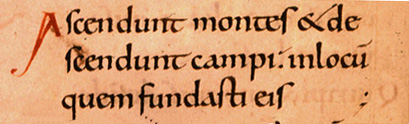 Ascendunt montes & de
scendunt campi. in locū
quem fundasti eis ;